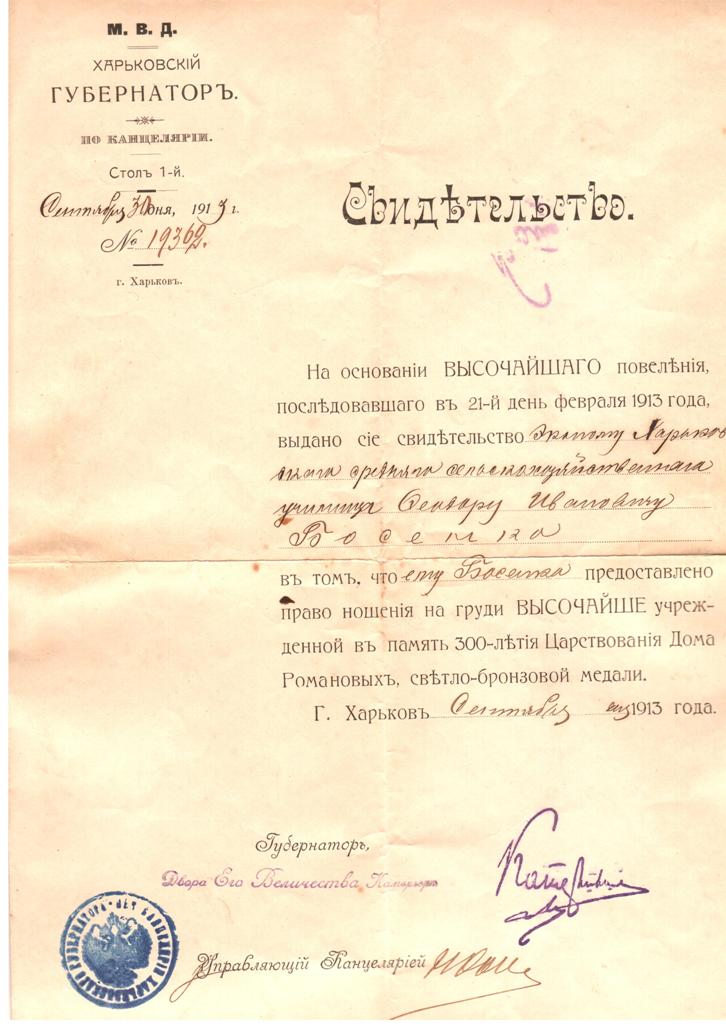 М. В. Д.
ХАРЬКОВСКІЙ
ГУБЕРНАТОРЪ.
ПО КАНЦЕЛЯРІИ.
Столъ 1-й.
Сентября 30 дня, 1913 г.
№ 19362.
г. Харьковъ.
Свидѣтельство.
На основаніи ВЫСОЧАЙШАГО повелѣнія,
послѣдовавшаго въ 21-й день февраля 1913 года,
выдано сіе свидѣтельство Эконому Харьков
скаго средняго сельскохозяйственнаго
училища Ѳеодору Ивановичу
въ томъ, что ему предоставлено
право ношенія на груди ВЫСОЧАЙШЕ учреж-
денной въ память 300-лѣтія Царствованія Дома
Романовыхъ, свѣтло-бронзовой медали.
Г. Харьковъ Сентября 1913 года.
Губернаторъ,
Двора Его Величества Камергеръ
Управляющій Канцеляріей